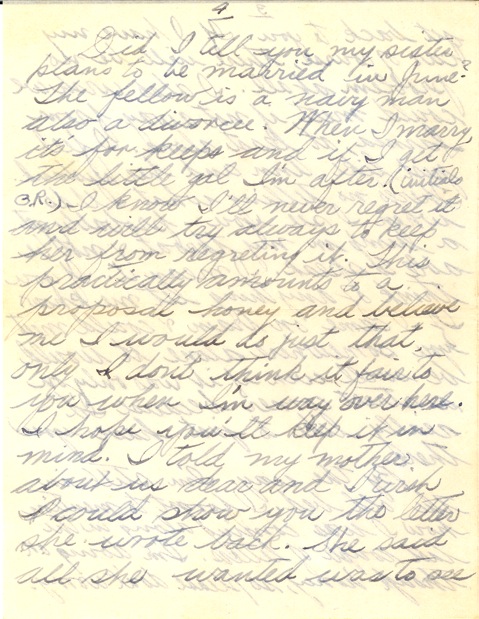 4
Did I tell you my sister
plans to be married in June?
The fellow is a navy man
also a divorcee. When I marry,
its for keeps and if I get
the little gal I'm after. (initials
B.R.) I know I'll never regret it
and will try always to keep
her from regreting it. This
practically amounts to a
proposal honey and believe
me I would do just that,
only I don't think it fair to
you when I'm way over here.
I hope you'll keep it in
mind. I told my mother
about us dear and I wish
I could show you the letter
she wrote back. She said
all she wanted was to see